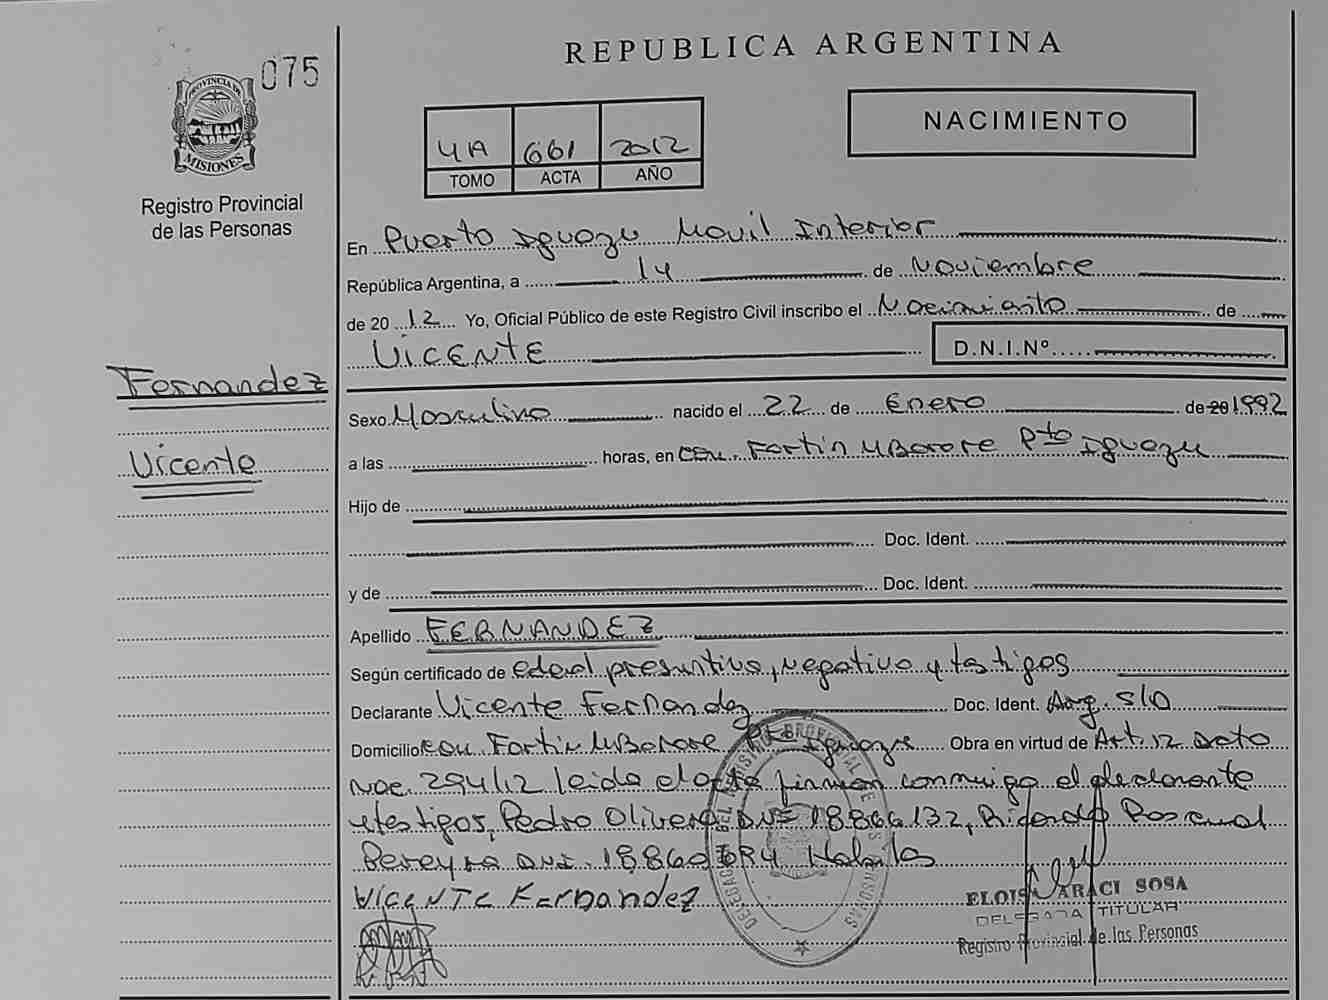 REPUBLICA ARGENTINA
075
PROVINCIA DE
MISIONES
Registro Provincial
de las Personas
NACIMIENTO
4A 661 2012
TOMO ACTA AÑO
En Puerto Iguazu Movil Interior
República Argentina, a 14 de Noviembre
de 20 12 Yo, Oficial Público de este Registro Civil inscribo el Nacimiento de
VICENTE D.N.I.Nº
Fernandez
Sexo Masculino nacido el 22 de Enero de 20 1992
Vicente
a las horas, en com. Fortin Mborore Pto Iguazu
Hijo de
Doc. Ident.
y de Doc. Ident.
Apellido FERNANDEZ
Según certificado de edad presuntiva, negativo y testigos
Declarante Vicente Fernandez Doc. Ident. Arg. S/D
Domicilio com. Fortin Mborore Pto Iguazu Obra en virtud de Art. 12 Dcto
Nac. 294/12 leida el acta firman conmigo el declarante
y testigos, Pedro Olivera DNI 18.866.132, Ricardo Pereyra DNI. 18.860
VICENTE Fernandez
DELEGACION DEL REGISTRO PROVINCIAL DE LAS PERSONAS
ELOISA ARACI SOSA
DELEGADA TITULAR
Registro Provincial de las Personas